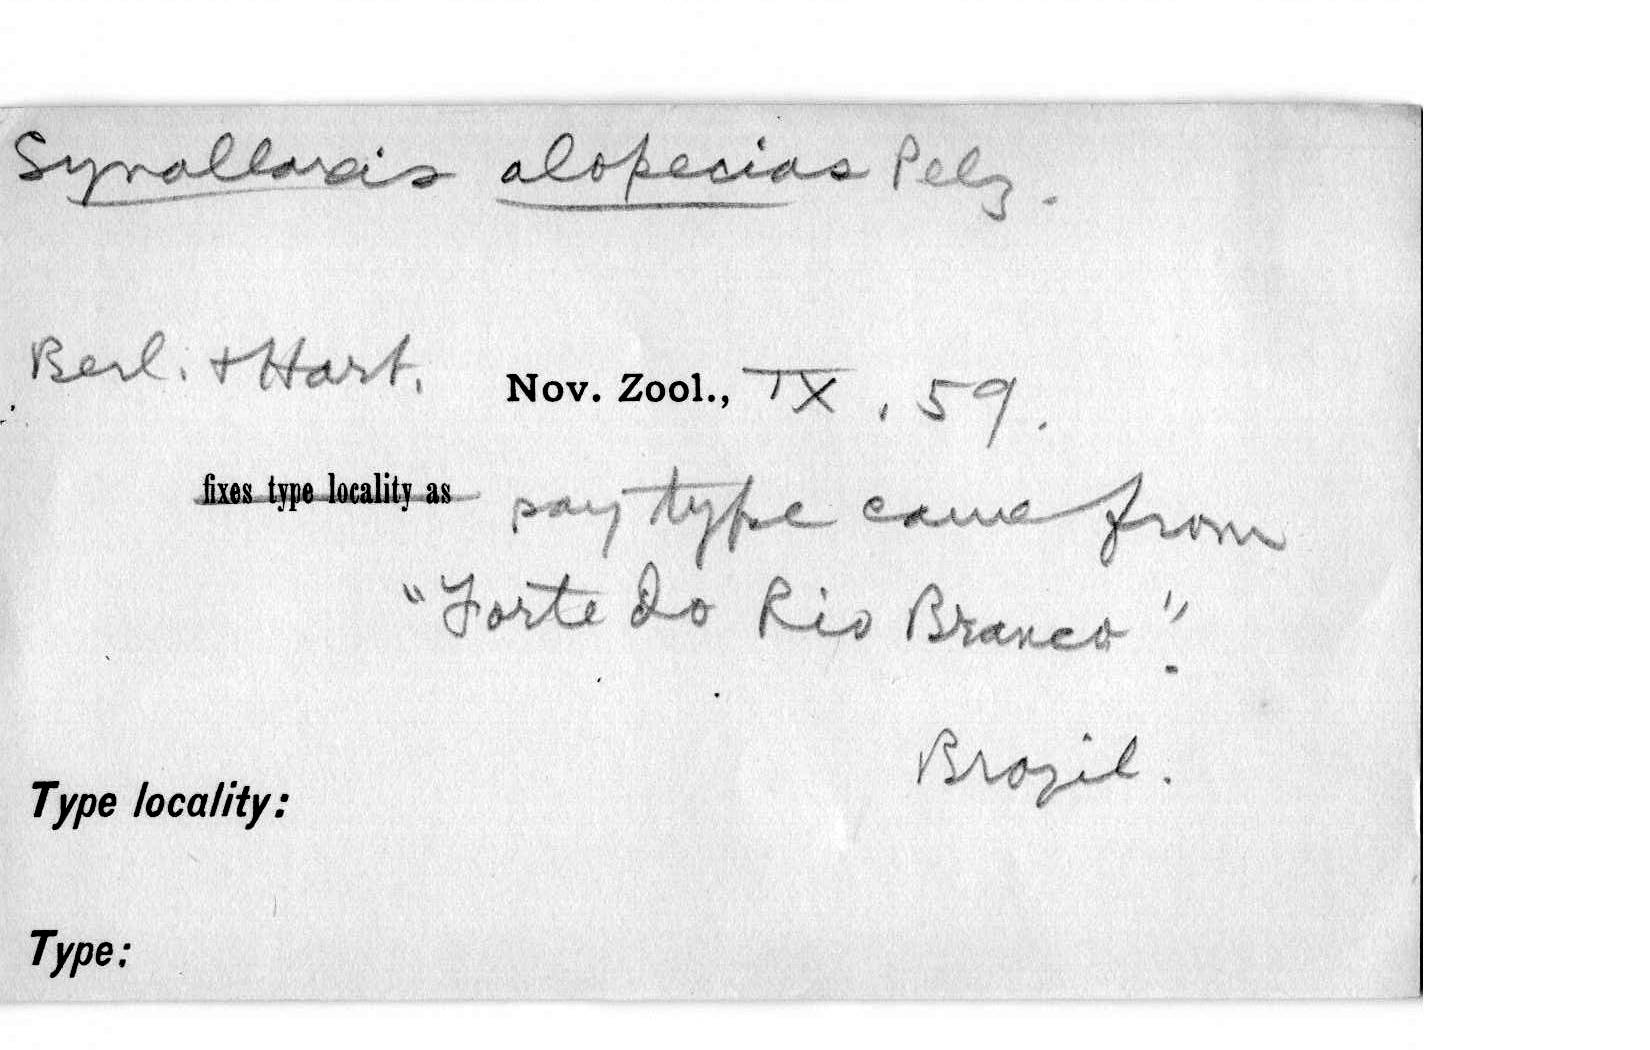 Synallaxis alopecias Pelz.
Berl. + Hart. Nov. Zool., IX, 59.
fixes type locality as say type came from
"Forte do Rio Branco".
Brazil.
Type locality:
Type: